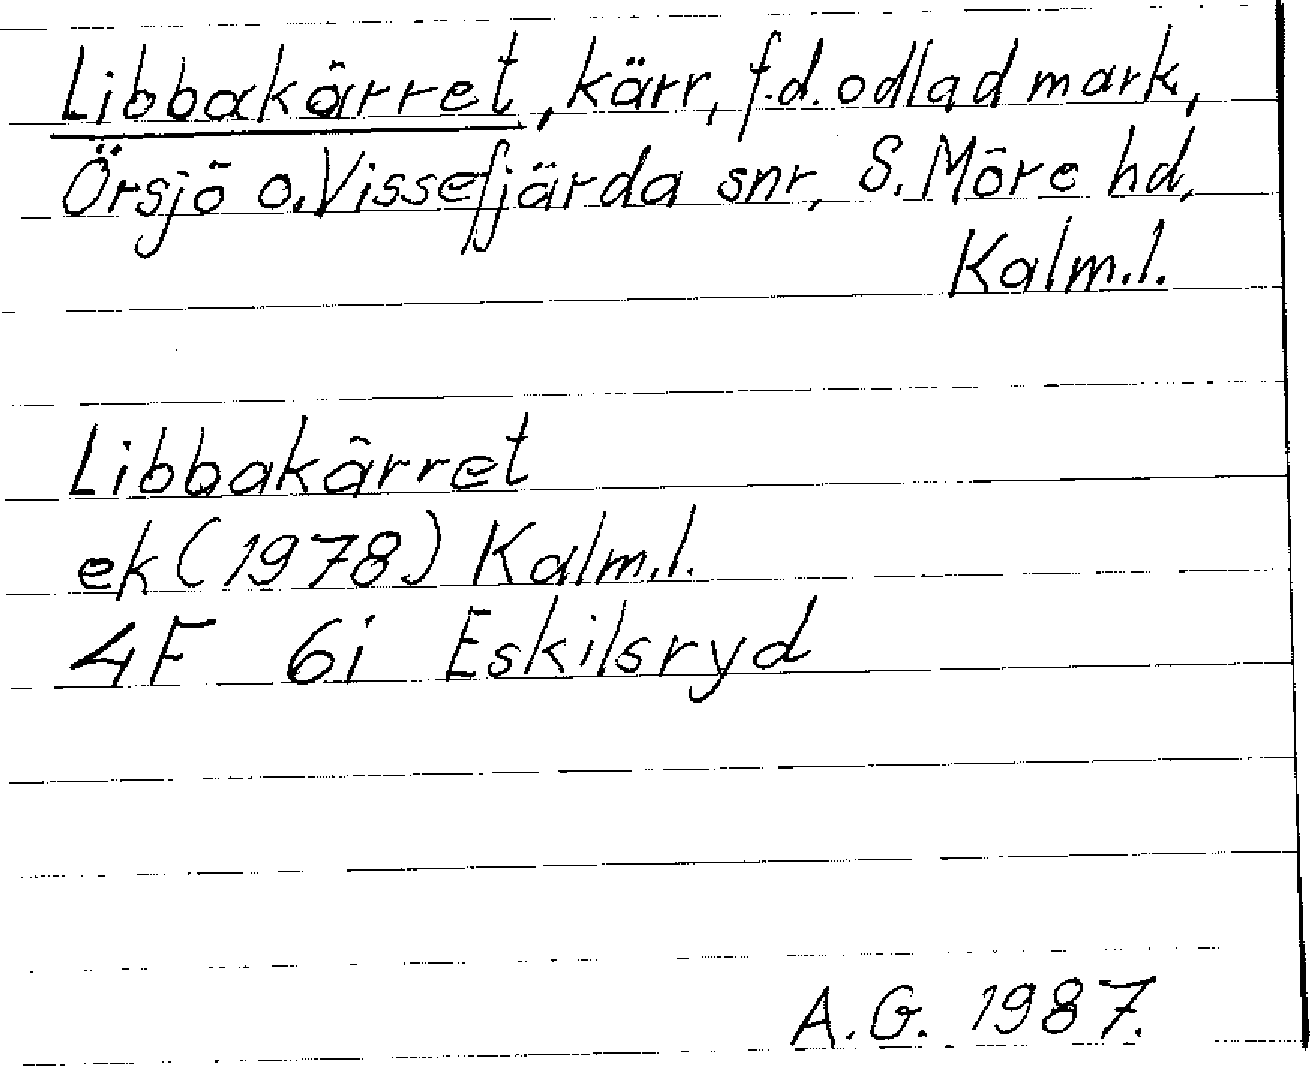 Libbakärret, kärr, f.d. odlad mark,
Örsjö o. Vissefjärda snr, S. Möre hd,
Kalm.l.
Libbakärret
ek (1978) Kalm.l.
4F 6i Eskilsryd
A.G. 1987.